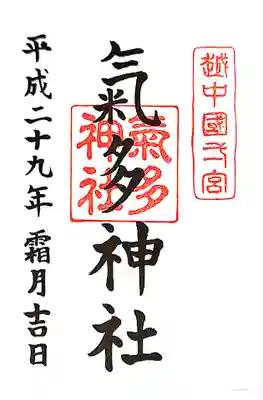 越中國一宮
氣多神社
氣多神社
平成二十九年 霜月吉日